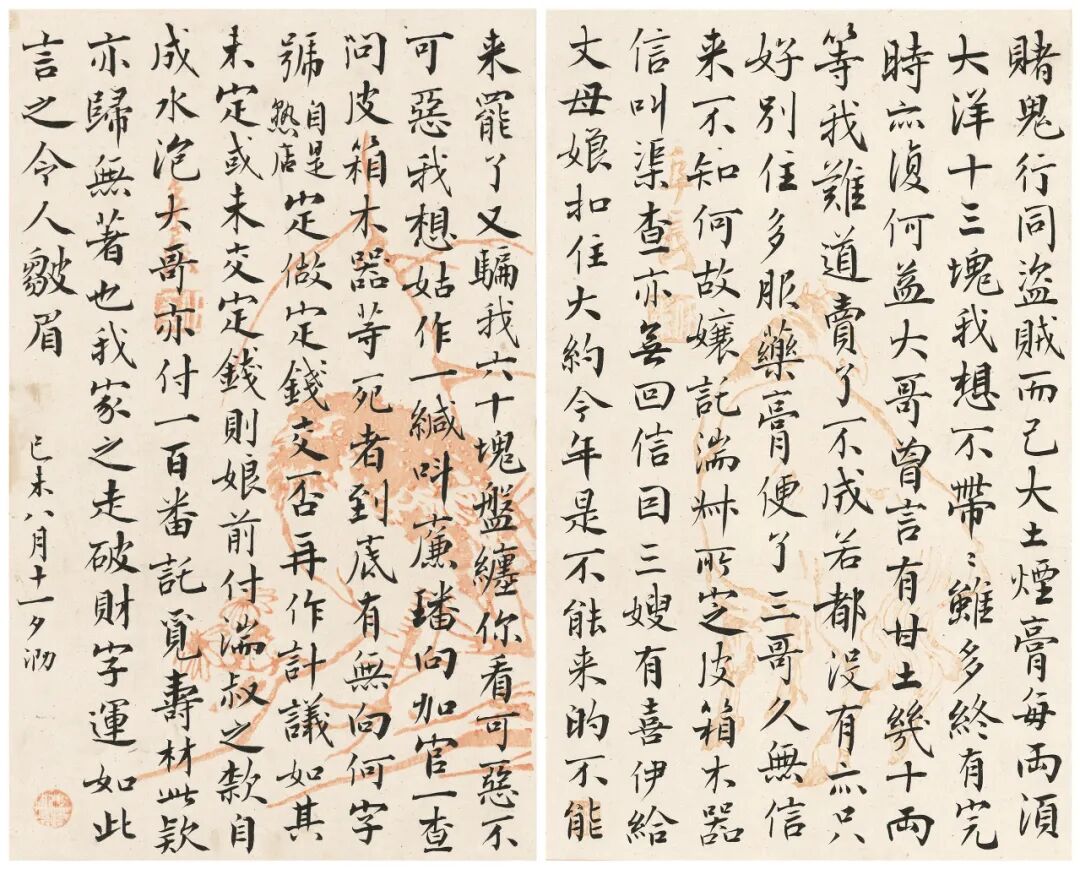 賭鬼行同盜賊而已大土煙膏每両須
大洋十三塊我想不帶〻雖多終有完
時亦復何益大哥曾言有甘土幾十両
等我難道賣了不成若都没有亦只
好別住多服藥膏便了三哥久無信
来不知何故孃託湍叔所定皮箱木器
信叫渠查亦無回信回三嫂有喜伊給
丈母娘扣住大約今年是不能来的不能
来罷了又騙我六十塊盤纏你看可惡不
可惡我想姑作一緘叫薕璠向加官一查
問皮箱木器等死者到底有無向何字
號自是熟店定做定錢交否再作計議如其
未定或未交定錢則娘前付湍叔之款自
成水泡大哥亦付一百番託覓壽材此款
亦歸無著也我家之走破財字運如此
言之令人皺眉
己未八月十一夕泐